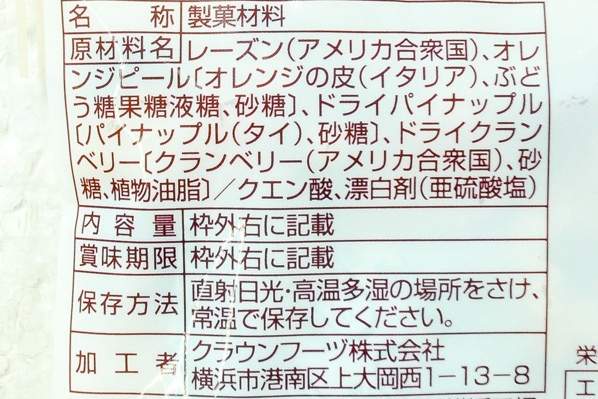 名称 製菓材料
原材料名 レーズン(アメリカ合衆国)、オレ
ンジピール〔オレンジの皮(イタリア)、ぶど
う糖果糖液糖、砂糖〕、ドライパイナップル
〔パイナップル(タイ)、砂糖〕、ドライクラン
ベリー〔クランベリー(アメリカ合衆国)、砂
糖、植物油脂〕/クエン酸、漂白剤(亜硫酸塩)
内容量 枠外右に記載
賞味期限 枠外右に記載
保存方法 直射日光・高温多湿の場所をさけ、
常温で保存してください。
加工者 クラウンフーヅ株式会社
横浜市港南区上大岡西1-13-8
栄
エ